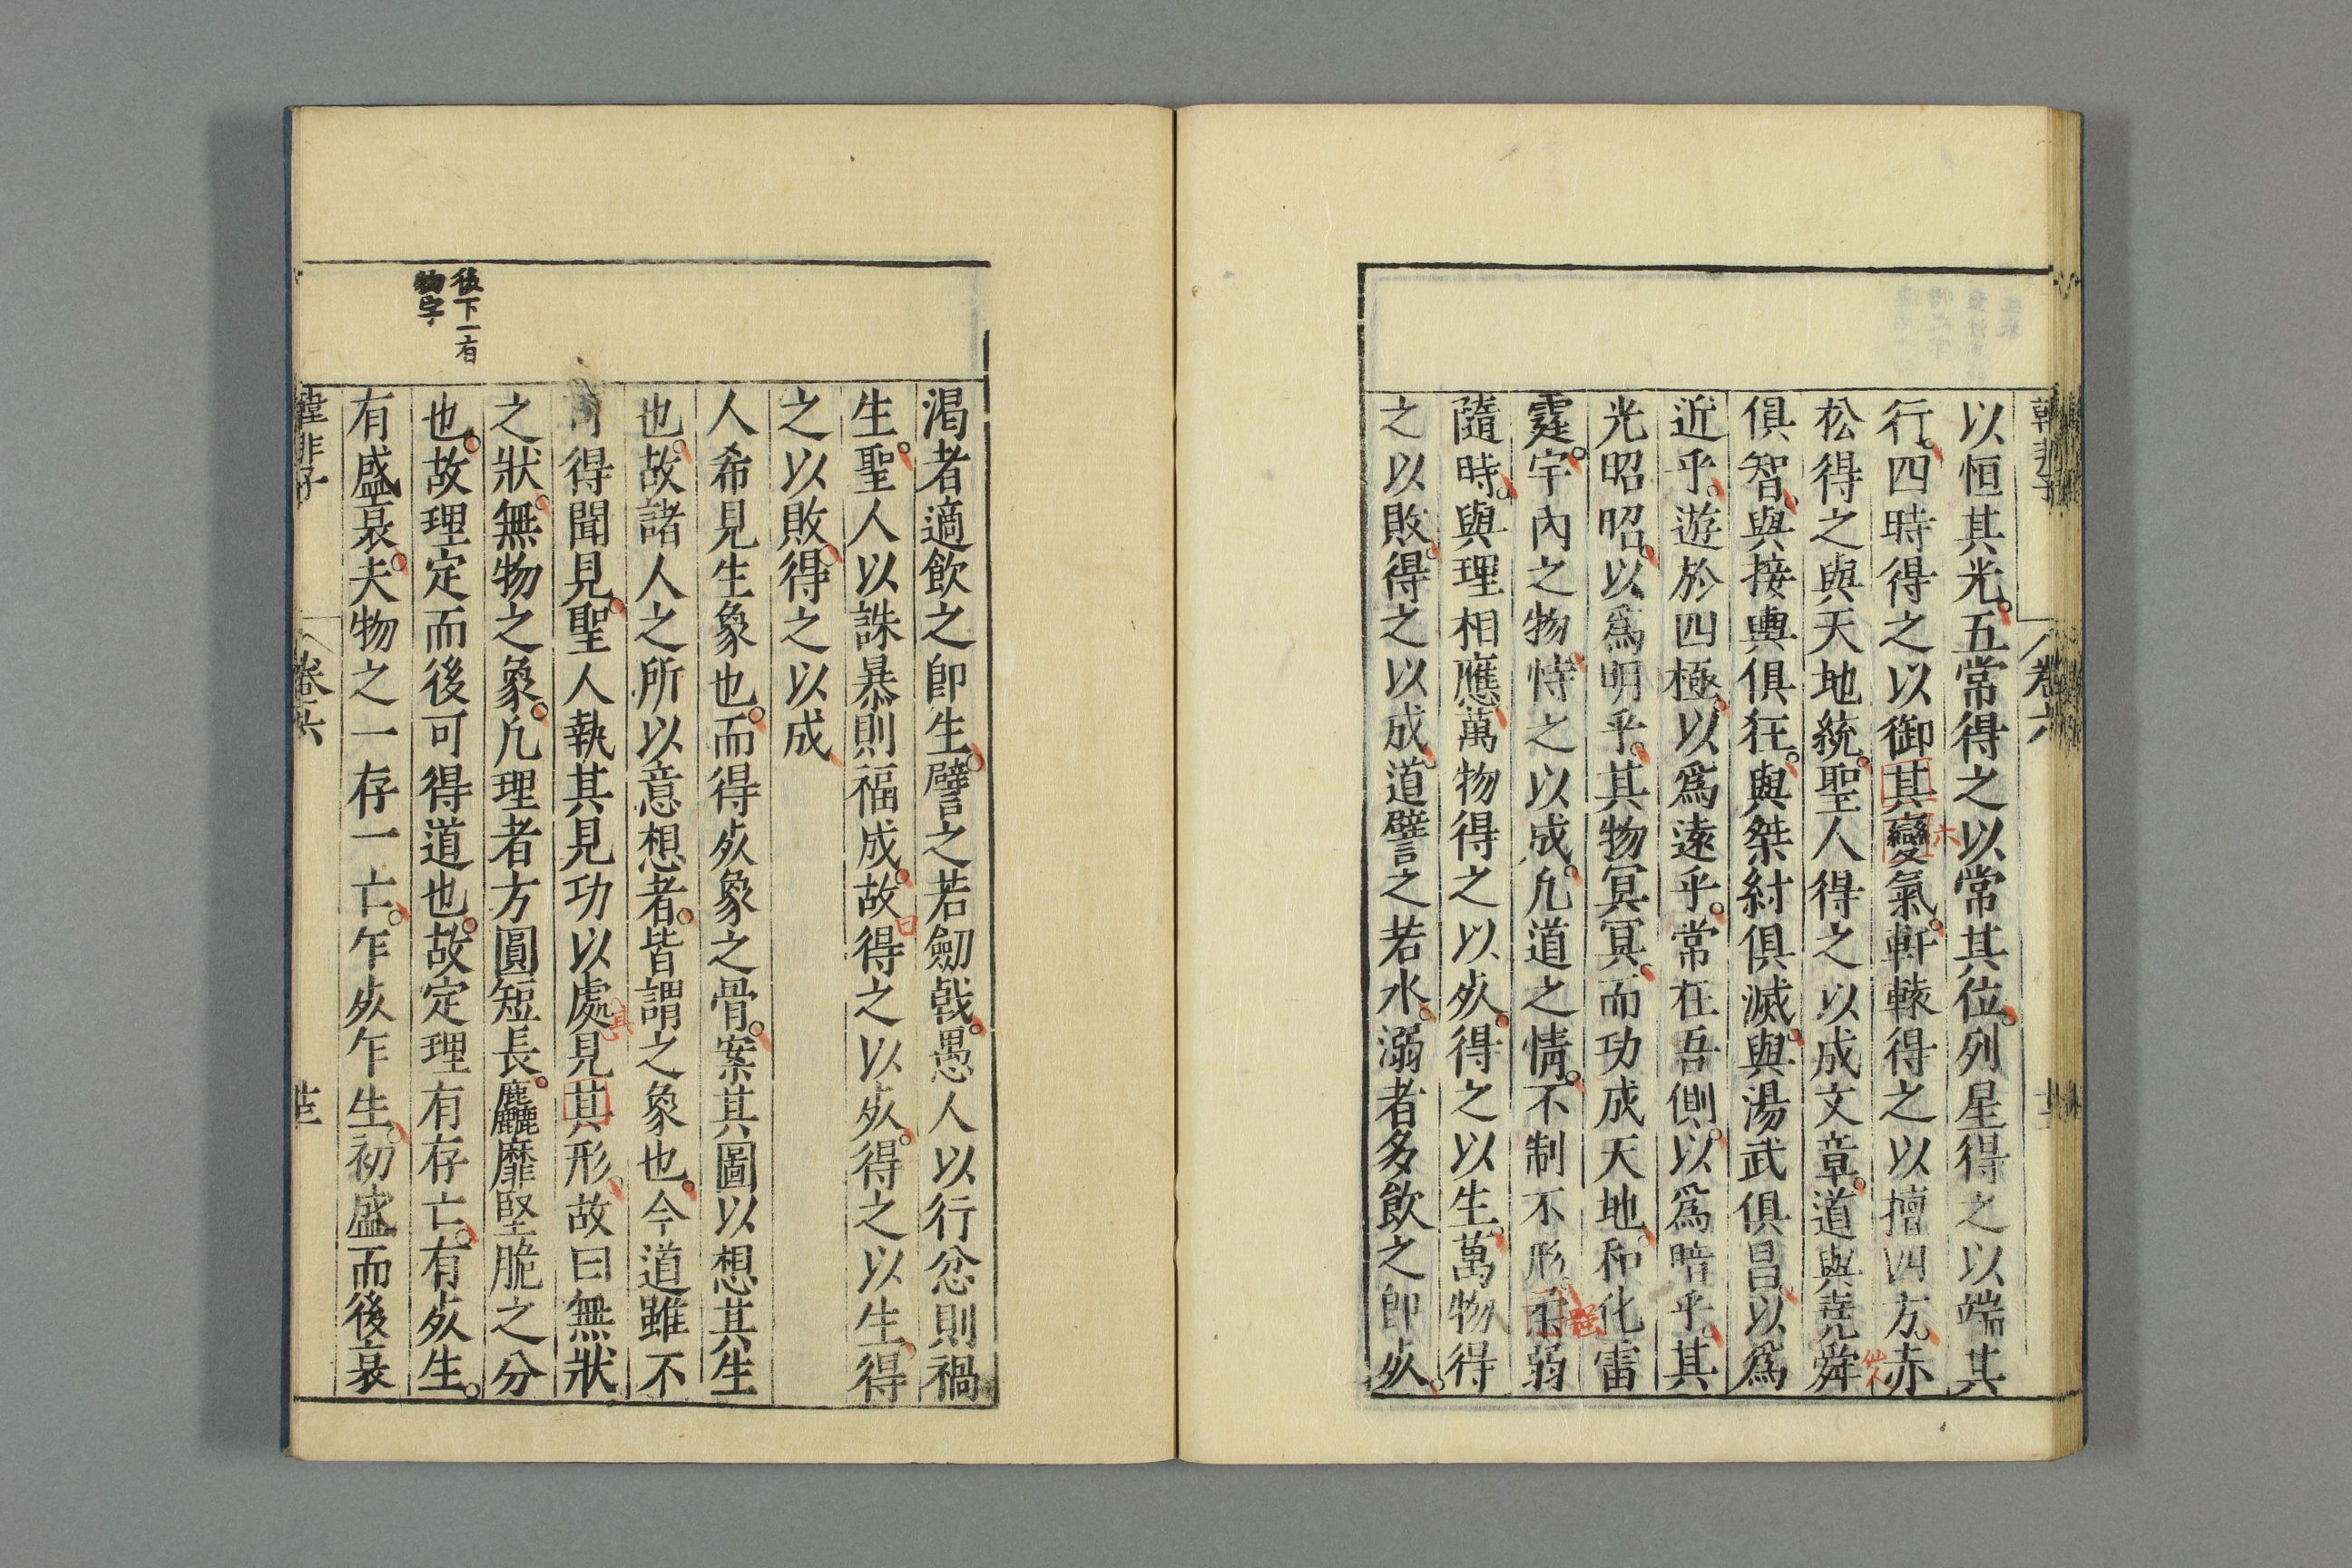 韓非子 卷六
以恒其光五常得之以常其位列星得之以端其
行四時得之以御其變氣軒轅得之以擅四方赤
松得之與天地統聖人得之以成文章道與堯舜
俱智與接輿俱狂與桀紂俱滅與湯武俱昌以爲
近乎遊於四極以爲遠乎常在吾側以爲暗乎其
光昭昭以爲明乎其物冥冥而功成天地和化雷
霆宇內之物恃之以成凡道之情不制不形柔弱
隨時與理相應萬物得之以死得之以生萬物得
之以敗得之以成道譬之若水溺者多飲之即死
六
仙人
强
渴者適飲之即生譬之若劒戟愚人以行忿則禍
生聖人以誅暴則福成故得之以死得之以生得
之以敗得之以成
人希見生象也而得死象之骨案其圖以想其生
也故諸人之所以意想者皆謂之象也今道雖不
可得聞見聖人執其見功以處見其形故曰無狀
之狀無物之象凡理者方圓短長麤靡堅脆之分
也故理定而後可得道也故定理有存亡有死生
有盛衰夫物之一存一亡乍死乍生初盛而後衰
曰
其
後下一有
物字
韓非子 卷六